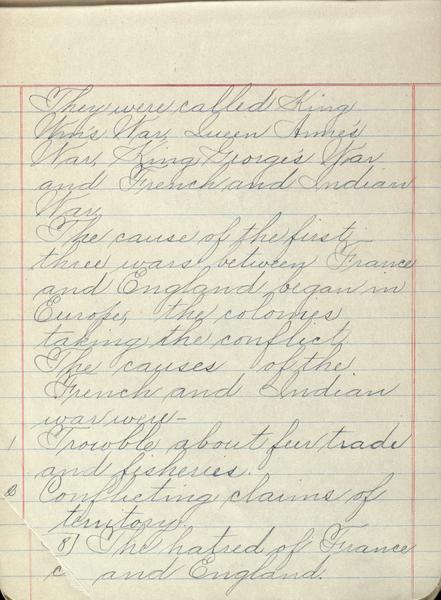 They were called King
Wm's War, Queen Anne's
War, King George's War
and French and Indian
War.
The cause of the first
three wars between France
and England began in
Europe, the colonies
taking the conflict.
The causes of the
French and Indian
war were-
1 Trowble about fur trade
and fisheries.
Conflicting claims of
territory.
8] The hatred of France
c and England.